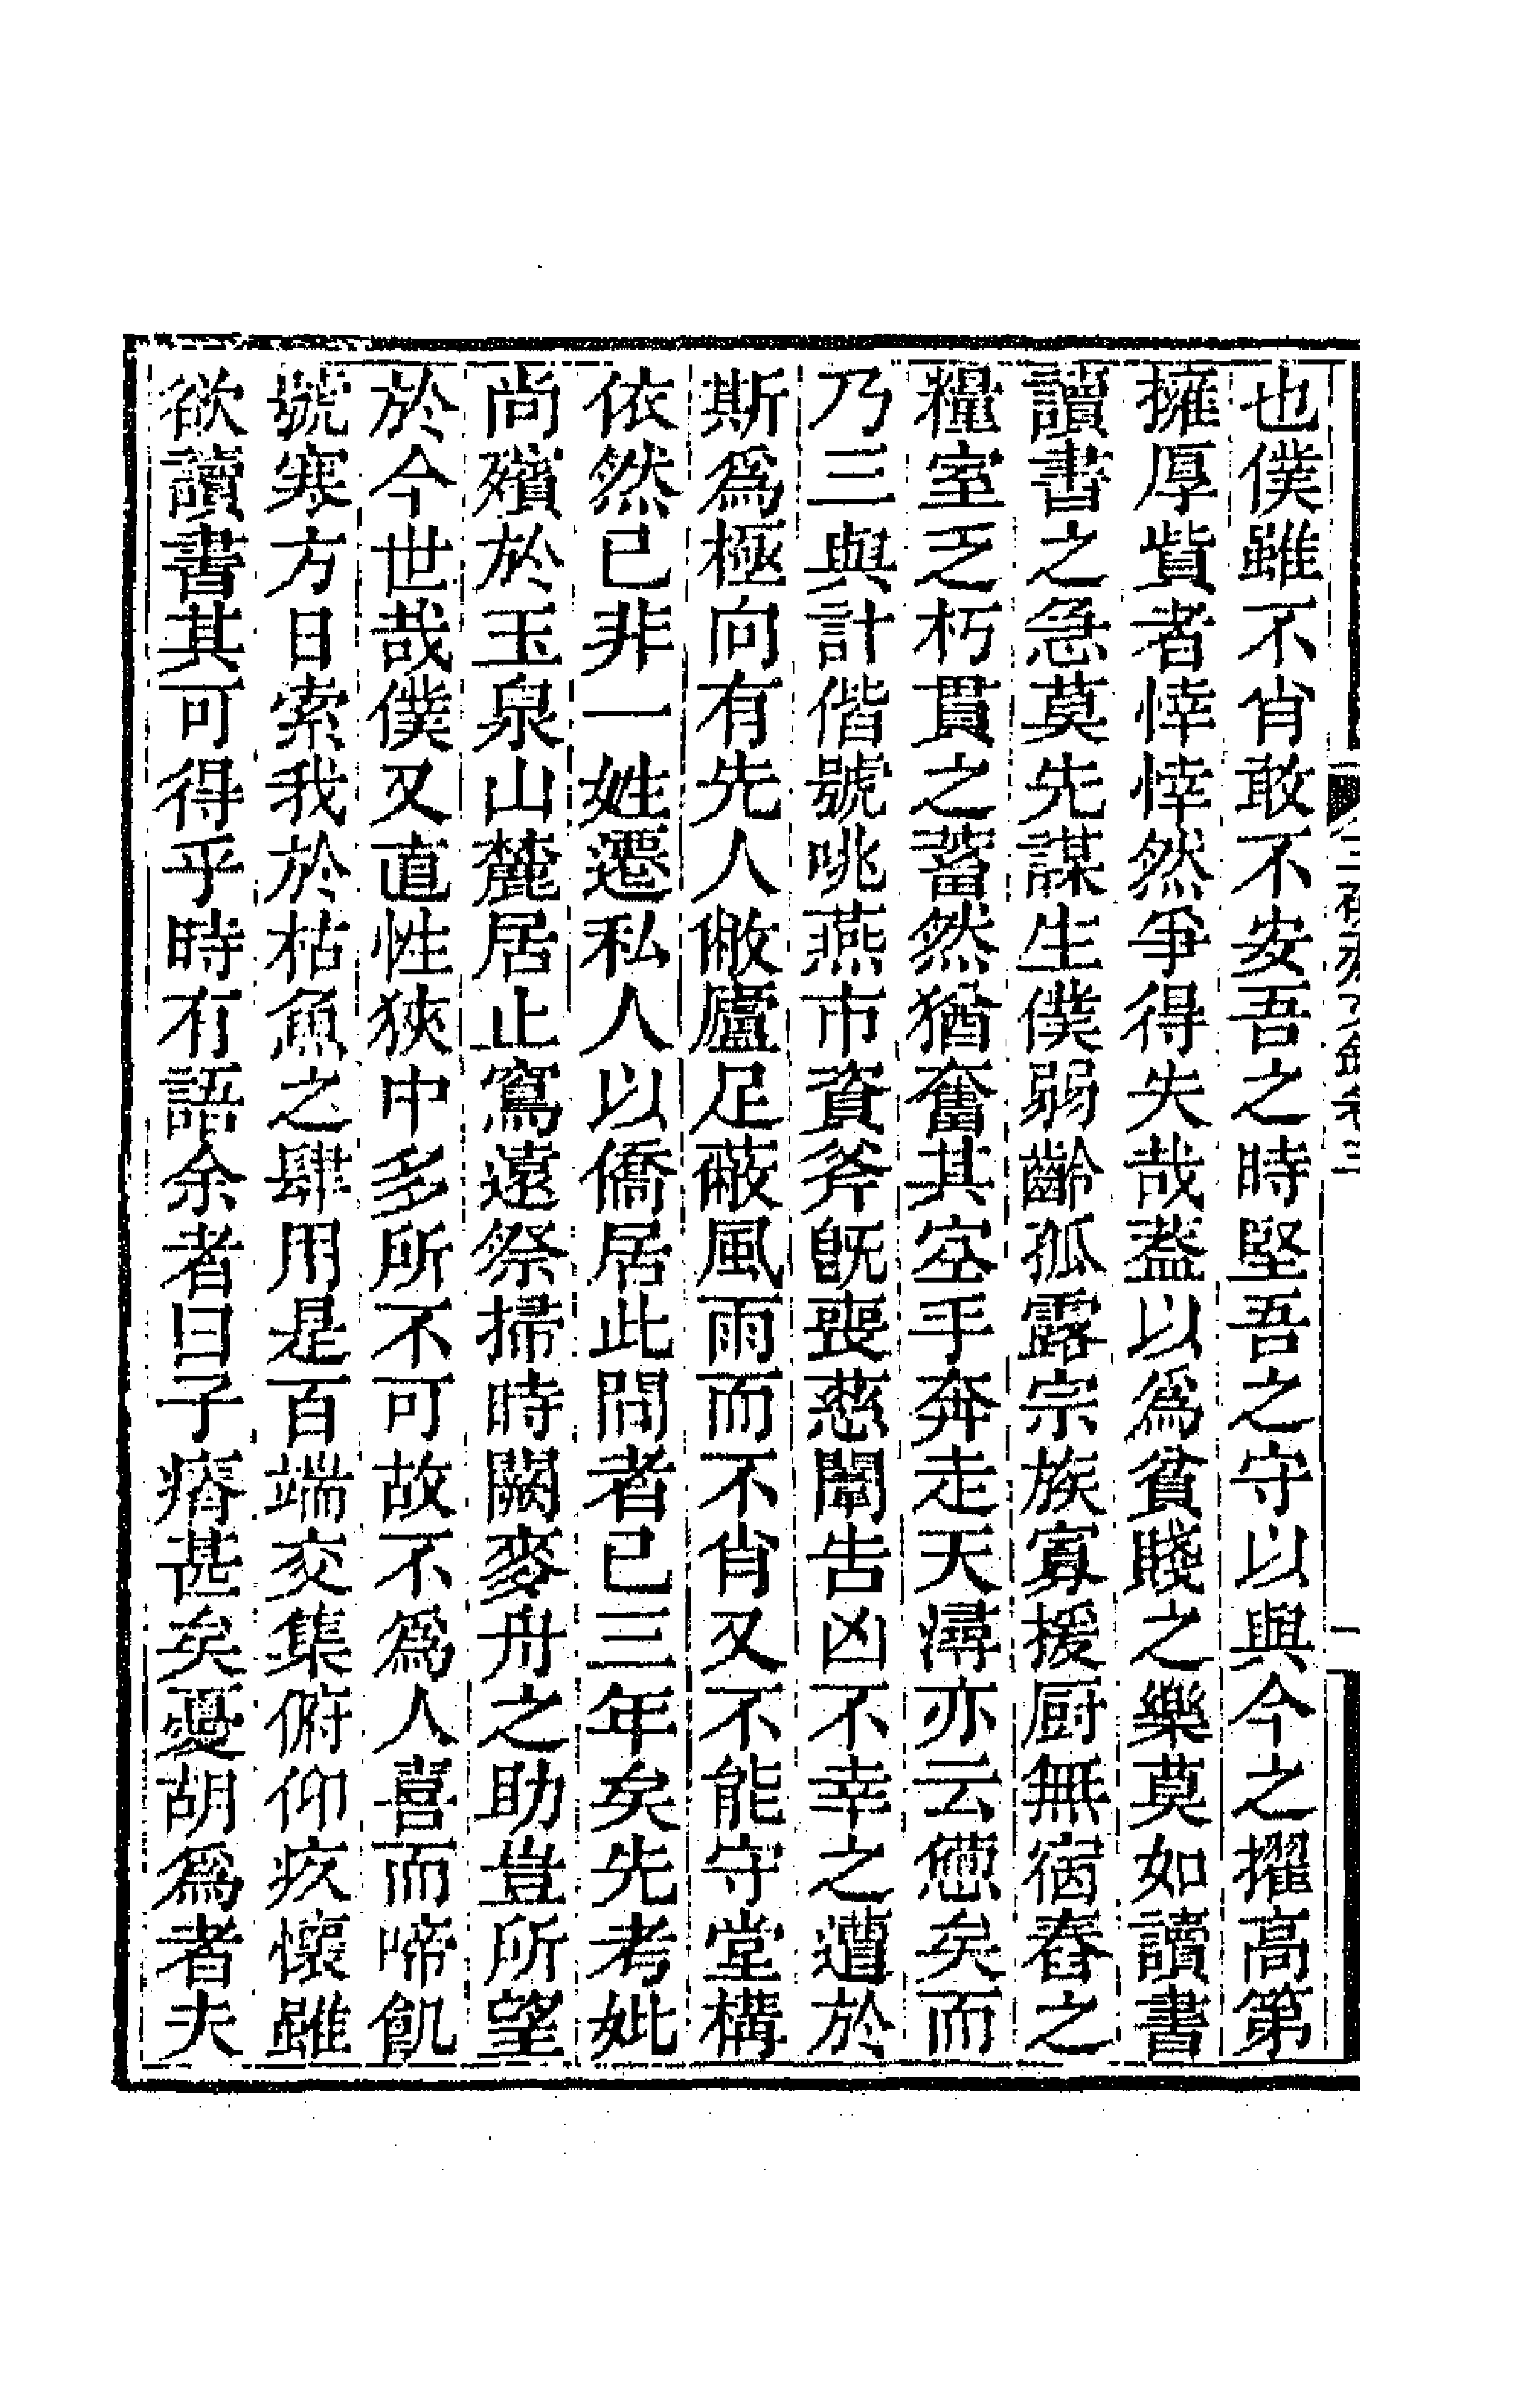 也僕雖不肖敢不安吾之時堅吾之守以與今之擢高第
擁厚貲者悻悻然爭得失哉蓋以爲貧賤之樂莫如讀書
讀書之急莫先謀生僕弱齡孤露宗族寡援厨無宿舂之
糧室乏朽貫之蓄然猶奮其空手奔走天潯亦云憊矣而
乃三與計偕號咷燕市資斧旣喪慈闈告凶不幸之遭於
斯爲極向有先人敝廬足蔽風雨而不肖又不能守堂構
依然已非一姓遷私人以僑居此間者已三年矣先考妣
尚殯於玉泉山麓居止寫遠祭掃時闕麥舟之助豈所望
於今世哉僕又直性狹中多所不可故不爲人喜而啼飢
號寒方日索我於枯魚之肆用是百端交集俯仰疚懷雖
欲讀書其可得乎時有語余者曰子瘠甚矣憂胡爲者夫